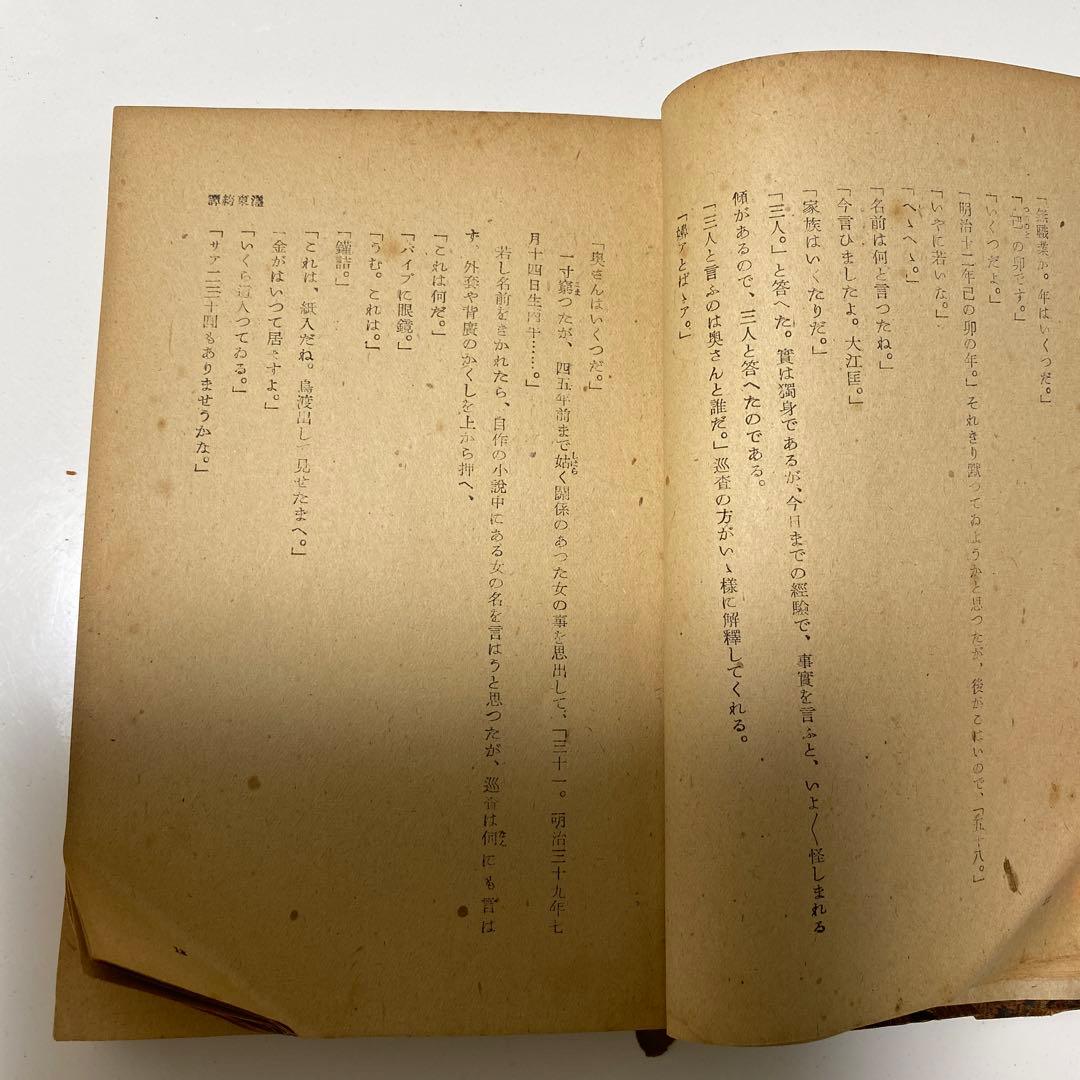 「無職業か。年はいくつだ。」
「己の卯です。」
「いくつだよ。」
「明治十二年己の卯の年。」それきり黙つてゐようかと思つたが、後がこはいので、「五十八。」
「いやに若いな。」
「へゝへゝ。」
「名前は何と言つたね。」
「今言ひましたよ。大江匡。」
「家族はいくたりだ。」
「三人。」と答へた。實は獨身であるが、今日までの經驗で、事實を言ふと、いよ〳〵怪しまれる
傾があるので、三人と答へたのである。
「三人と言ふのは奥さんと誰だ。」巡査の方がいゝ樣に解釋してくれる。
「嚊アとばゝア。」
「奥さんはいくつだ。」
一寸窮つたが、四五年前まで姑く關係のあつた女の事を思出して、「三十一。明治三十九年七
月十四日生丙午……。」
若し名前をきかれたら、自作の小説中にある女の名を言はうと思つたが、巡査は何にも言は
ず、外套や背廣のかくしを上から押へ、
「これは何だ。」
「パイプに眼鏡。」
「うむ。これは。」
「鑵詰。」
「これは、紙入だね。鳥渡出して見せたまへ。」
「金がはいつて居ますよ。」
「いくら這入つてゐる。」
「サア二三十圓もありませうかな。」
濹東綺譚